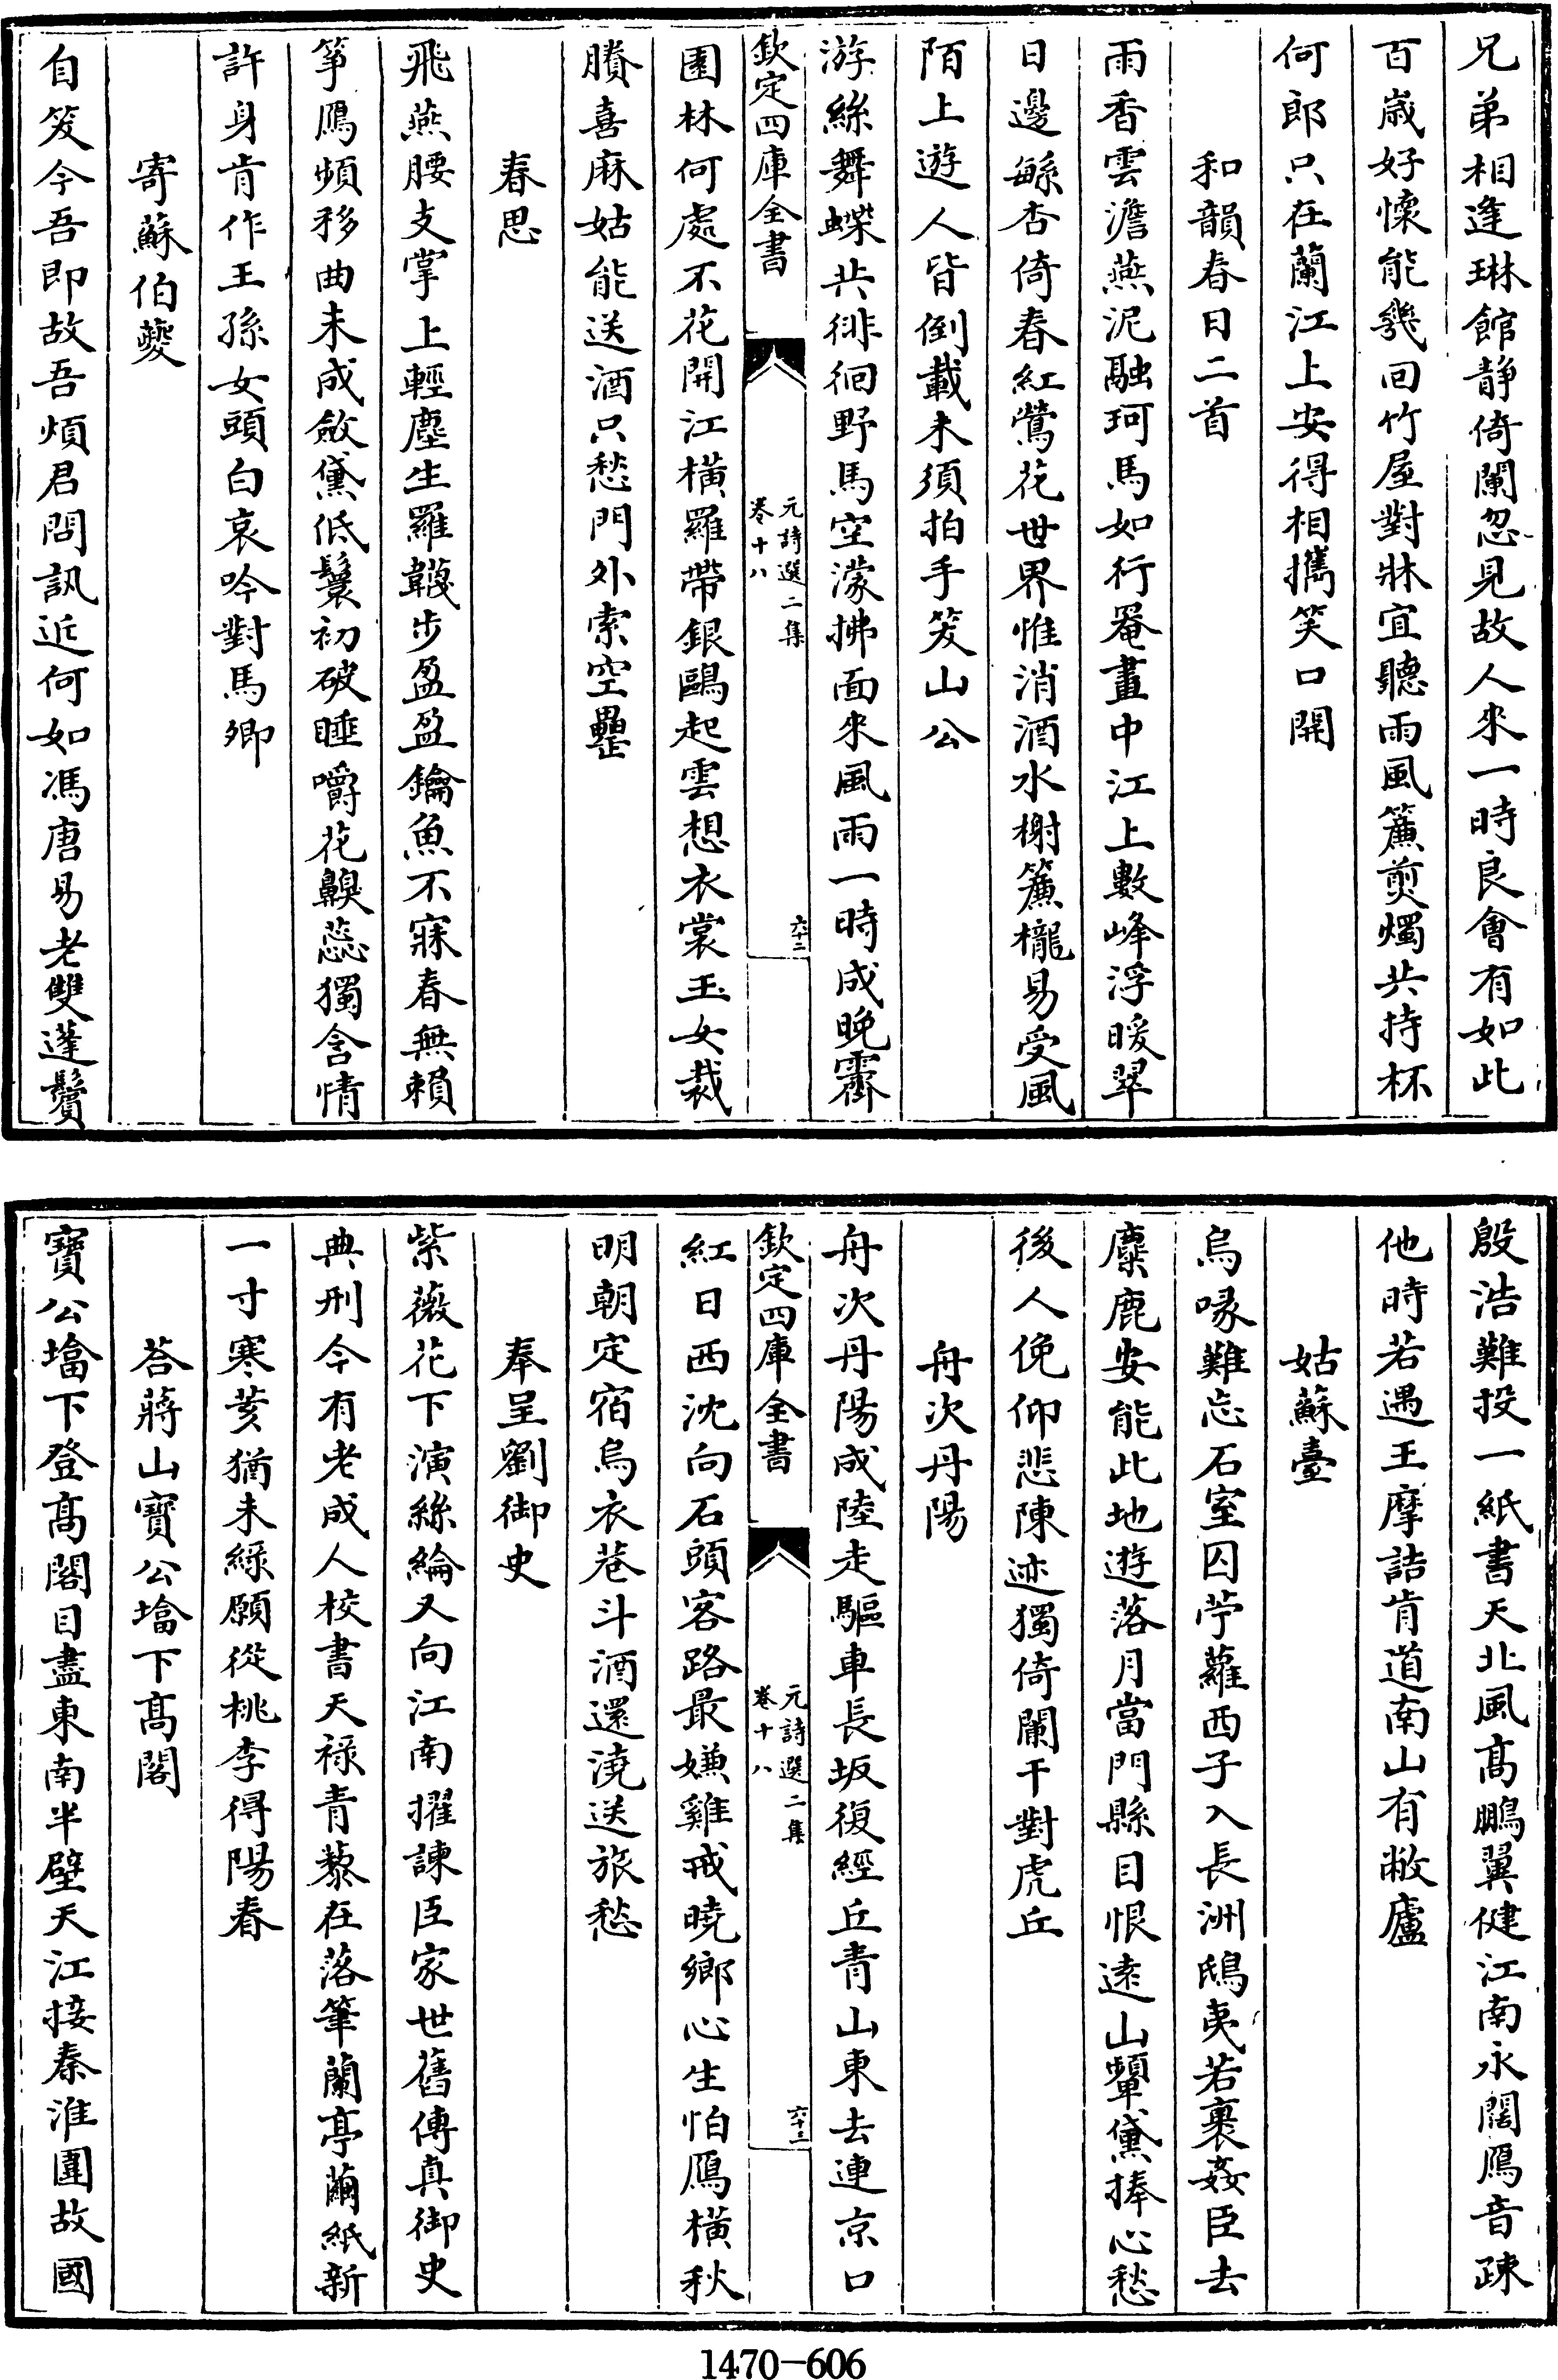 兄弟相逢琳館静倚闌忽見故人来一時良會有如此
百歲好懷能幾回竹屋對牀宜聽雨風簾剪燭共持杯
何郎只在蘭江上安得相攜笑口開
和韻春日二首
雨香雲澹燕泥融珂馬如行罨畫中江上數峰浮暖翠
日邊緐杏倚春紅鶯花世界惟消酒水榭簾櫳易受風
陌上遊人皆倒載未須拍手笑山公
游絲舞蝶共徘徊野馬空濛拂面来風雨一時成晚霽
欽定四庫全書
元詩選二集
卷十八
六十二
園林何處不花開江橫羅帶銀鷗起雲想衣裳玉女裁
賸喜麻姑能送酒只愁門外索空罍
春思
飛燕腰支掌上輕塵生羅韈步盈盈鑰魚不寐春無賴
箏鴈頻移曲未成斂黛低鬟初破睡嚼花齅蕊獨含情
許身肯作王孫女頭白哀吟對馬卿
寄蘇伯夔
自笑今吾即故吾煩君問訊近何如馮唐易老雙蓬鬢
殷浩難投一紙書天北風髙鵬翼健江南永闊鴈音疎
他時若遇王摩詰肯道南山有敝廬
姑蘇臺
烏喙難忘石室囚苧蘿西子入長洲鴟夷若裹姦臣去
麋鹿安能此地遊落月當門縣目恨遠山顰黛捧心愁
後人俛仰悲陳迹獨倚闌干對虎丘
舟次丹陽
舟次丹陽成陸走驅車長坂復經丘青山東去連京口
欽定四庫全書
元詩選二集
卷十八
六十三
紅日西沈向石頭客路最嫌雞戒曉鄉心生怕鴈橫秋
明朝定宿烏衣巷斗酒還澆送旅愁
奉呈劉御史
紫薇花下演絲綸又向江南擢諫臣家世舊傳真御史
典刑今有老成人校書天禄青藜在落筆蘭亭繭紙新
一寸寒荄猶未緑願從桃李得陽春
荅蔣山寶公墖下髙閣
寶公墖下登髙閣目盡東南半壁天江接秦淮圍故國
1470-606